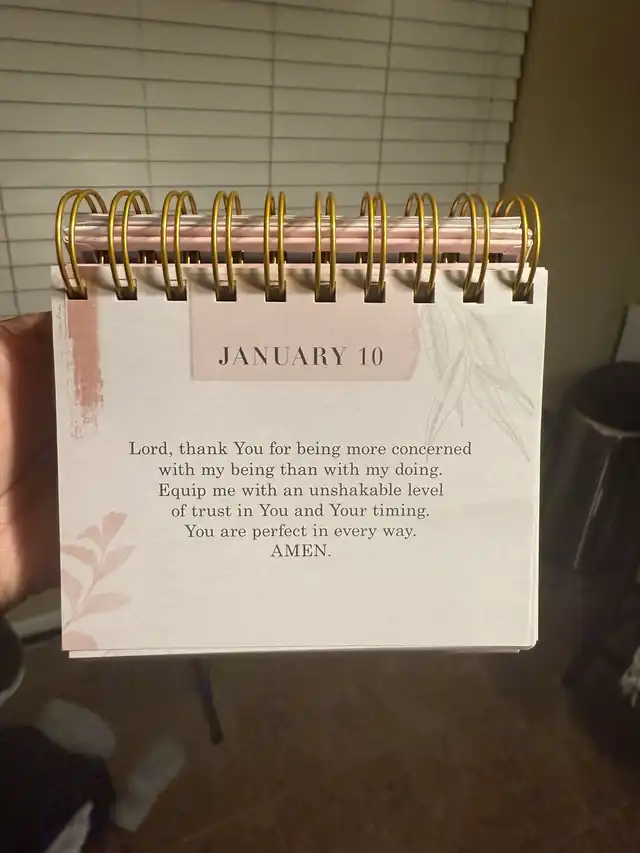 JANUARY 10
Lord, thank You for being more concerned
with my being than with my doing.
Equip me with an unshakable level
of trust in You and Your timing.
You are perfect in every way.
AMEN.